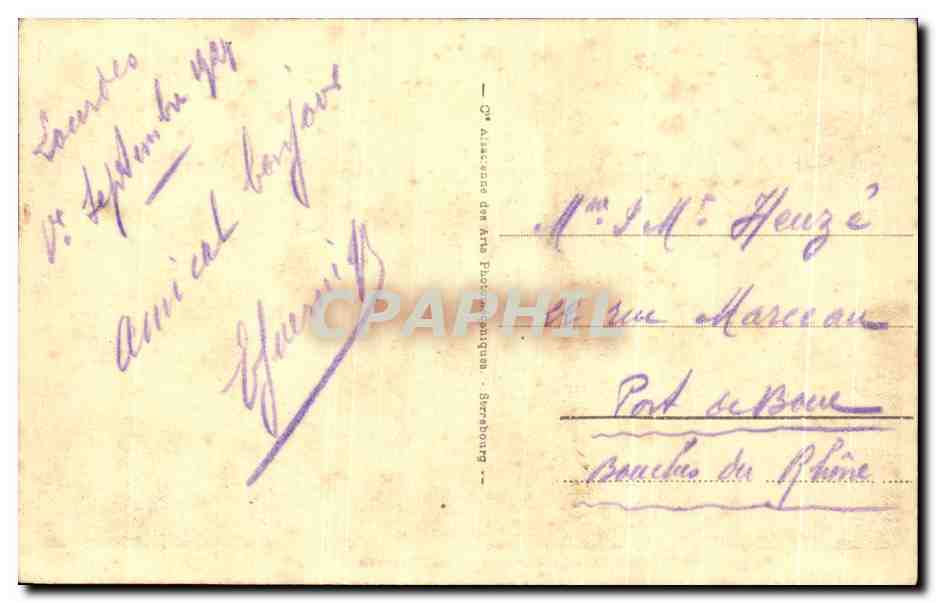 Lourdes
Septembre
amical bonjour
Cie Alsacienne des Arts Photomécaniques. - Strasbourg
Mme & Mr Heuzé
rue Marceau
Port de Bouc
Bouches du Rhône
CPAPHIL